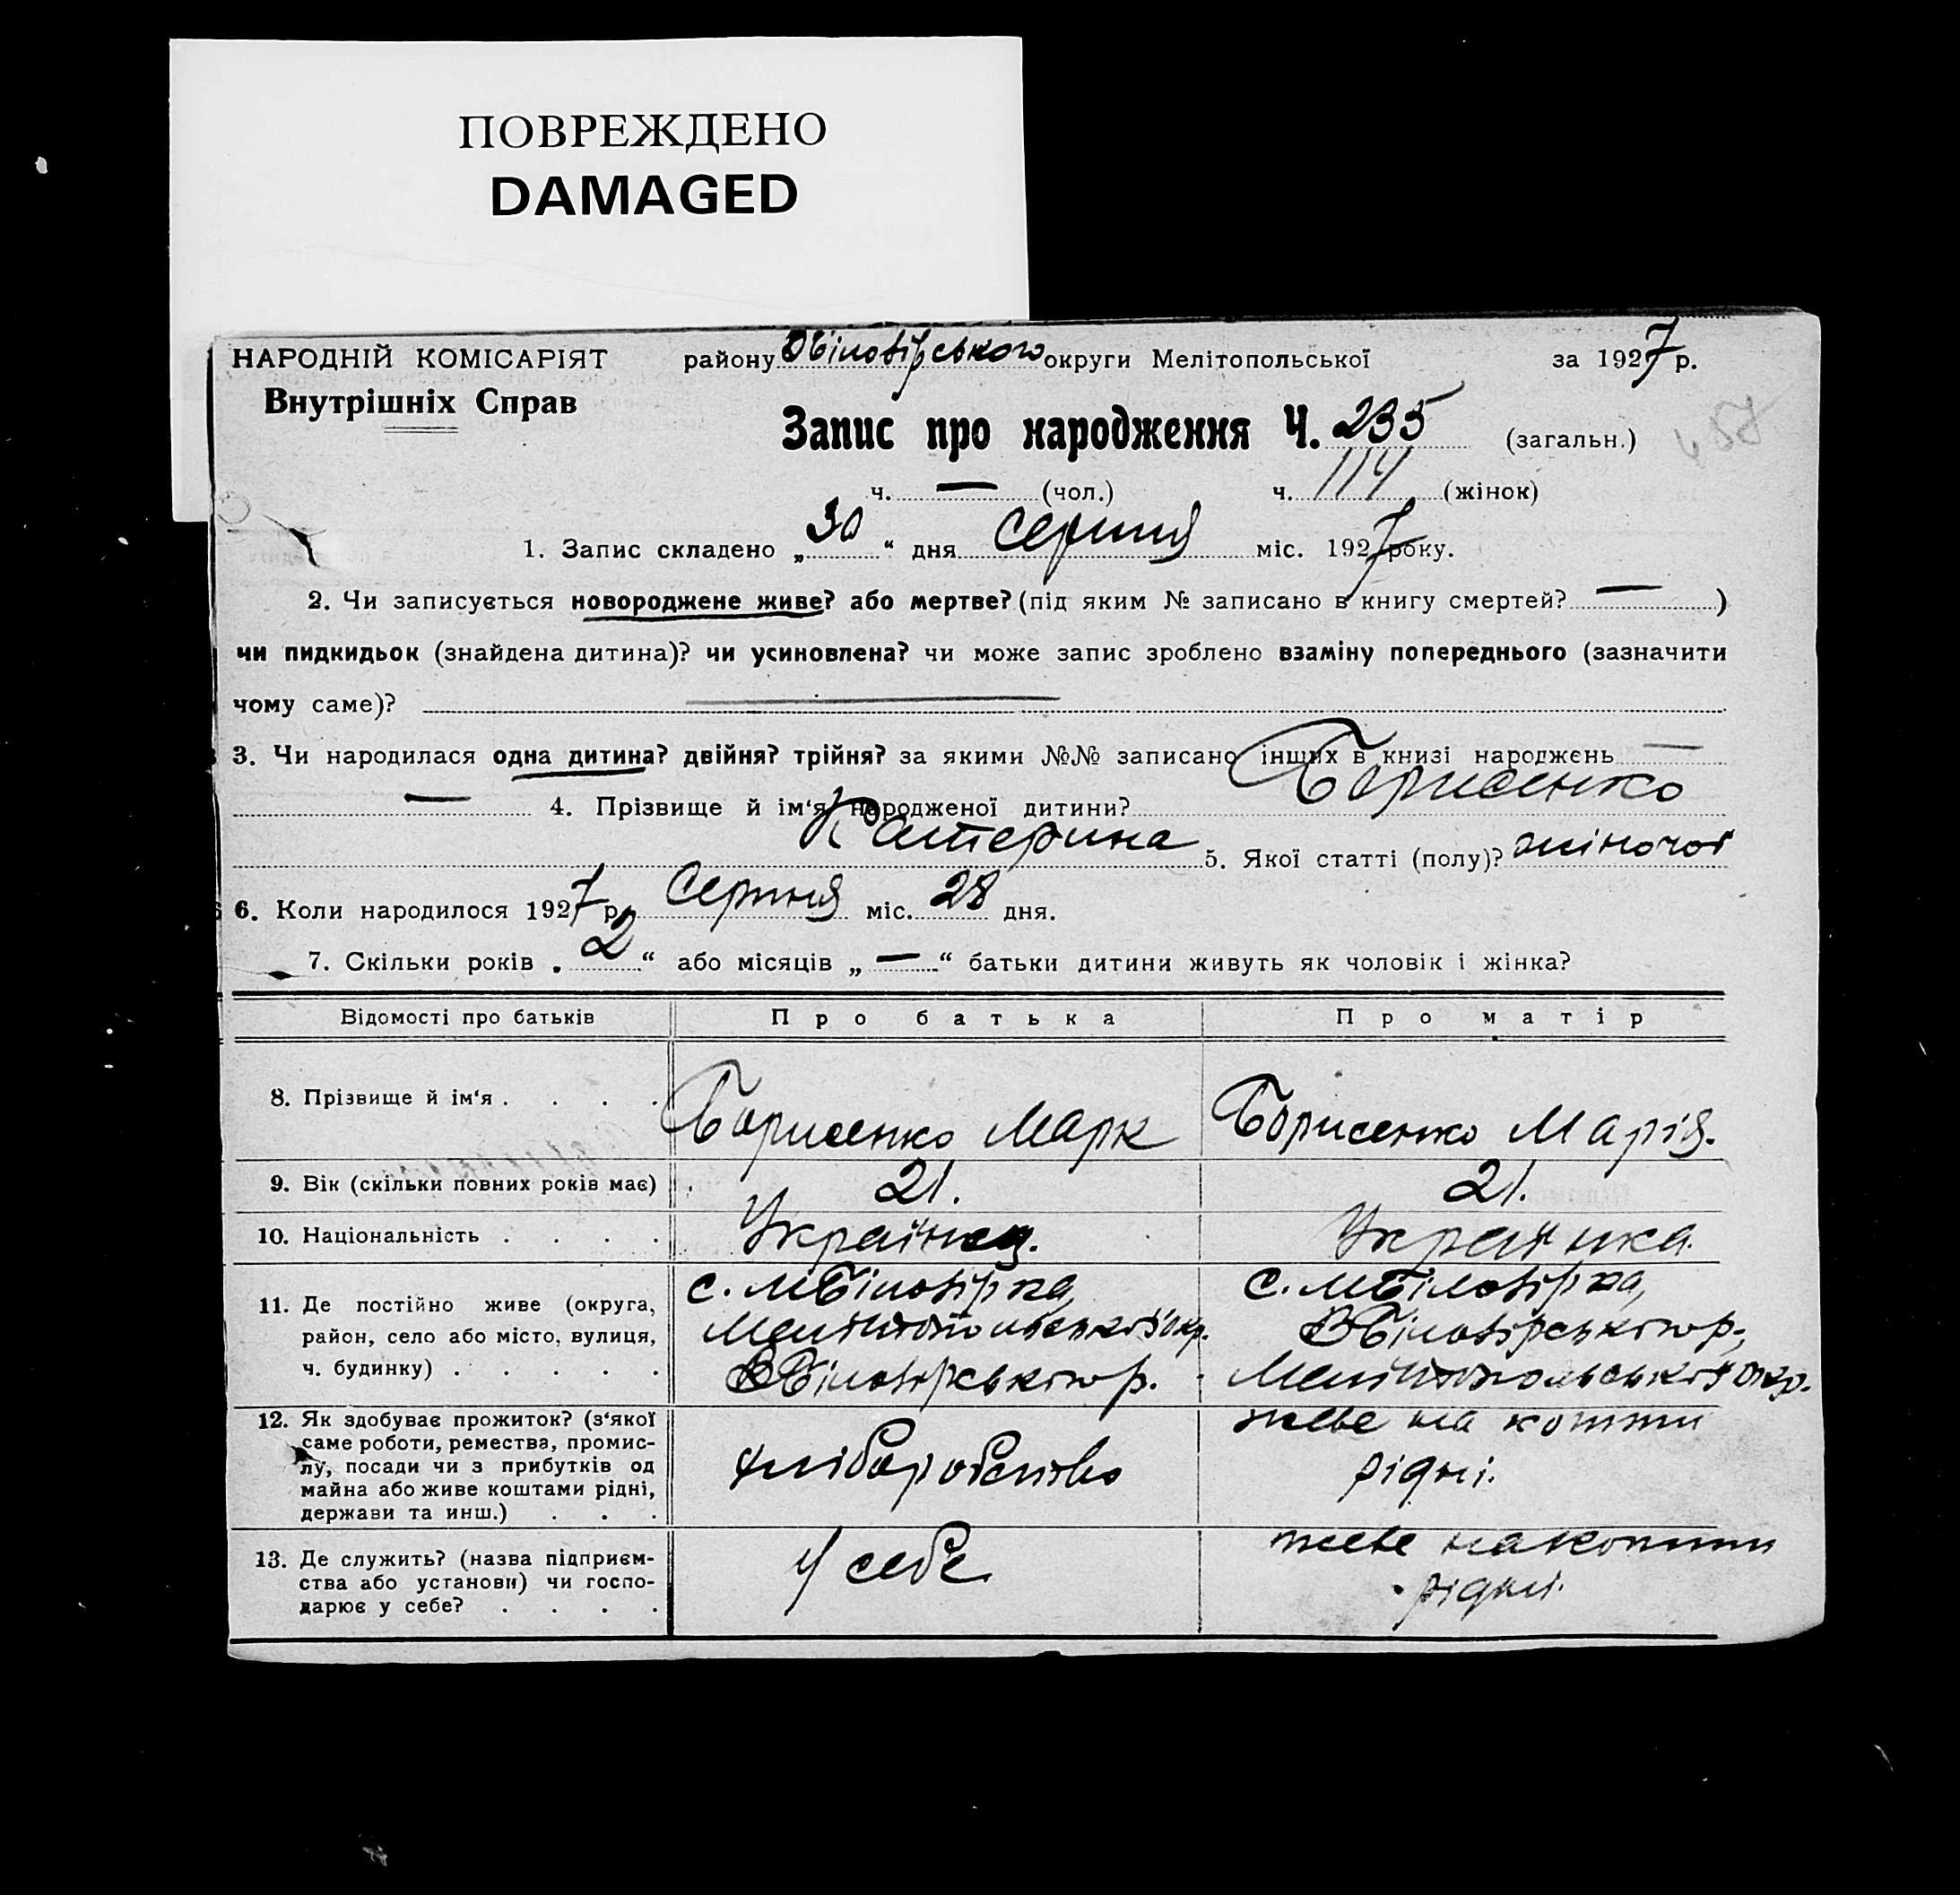 ПОВРЕЖДЕНО
DAMAGED
НАРОДНІЙ КОМІСАРІЯТ району ВБіловірського округи Мелітопольської за 1927 р.
Внутрішніх Справ
Запис про народження Ч. 235 (загальн.)
ч. — (чол.) ч. 114 (жінок)
1. Запис складено „30“ дня серпня міс. 1927 року.
2. Чи записується новороджене живе? або мертве? (під яким № записано в книгу смертей? — )
чи пидкидьок (знайдена дитина)? чи усиновлена? чи може запис зроблено взаміну попереднього (зазначити
чому саме)? —
3. Чи народилася одна дитина? двійня? трійня? за якими №№ записано інших в книзі народжень —
— 4. Прізвище й ім‘я народженої дитини? Борисенко
Катерина 5. Якої статті (полу)? жіночої
6. Коли народилося 1927 р. Серпня міс. 28 дня.
7. Скільки років „2“ або місяців „—“ батьки дитини живуть як чоловік і жінка?
Відомості про батьків Про батька Про матір
8. Прізвище й ім‘я . . . . Борисенко Марк Борисенко Марія.
9. Вік (скільки повних років має) 21. 21.
10. Національність . . . . Українец. Українка.
11. Де постійно живе (округа, с. МБіловірка, с. МБіловірка,
район, село або місто, вулиця, Мелітопольської окр. ВБіловірського р.,
ч. будинку) . . . . . ВБіловірського р. Мелітопольської окр.
12. Як здобуває прожиток? (з‘якої живе на кошти
саме роботи, ремества, промис-
лу, посади чи з прибутків од хліборобство рідні.
майна або живе коштами рідні,
держави та инш.) . . .
13. Де служить? (назва підприєм- живе на кошти
ства або установи) чи госпо- у себе рідні.
дарює у себе? . . . .